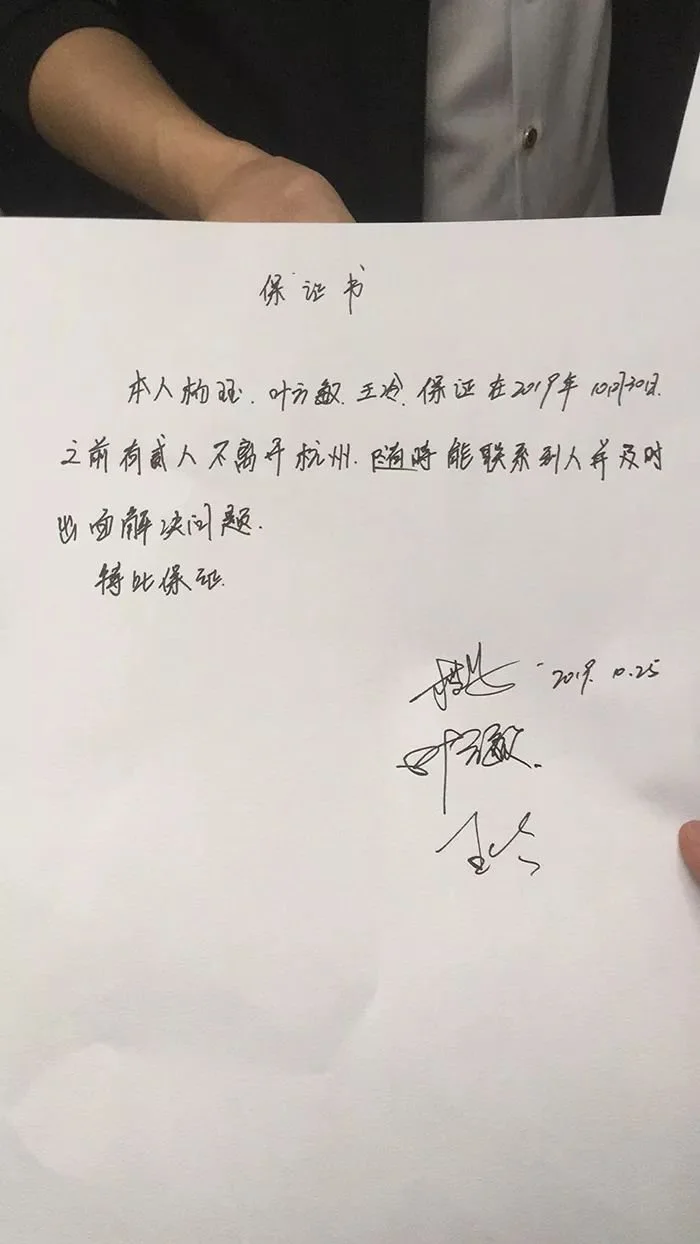 保证书
本人杨珏.叶方敏.王冷.保证在2019年10月30日.
之前有贰人不离开杭州.随时能联系到人并及时
出面解决问题.
特此保证.
2019.10.25
叶方敏.
王冷